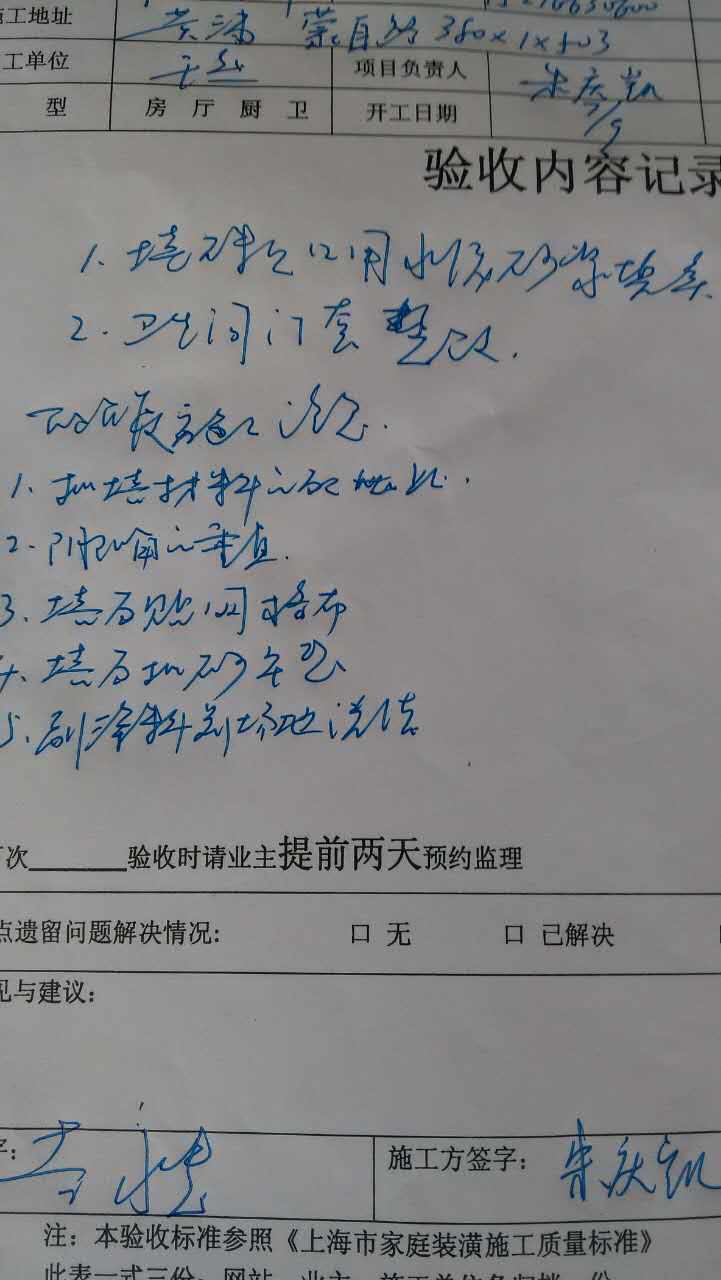 施工地址 黄浦 蒙自路 380×1×803
工单位 项目负责人 朱庆凯
型 房 厅 厨 卫 开工日期 7/9
验收内容记录
1. 墙 口用水泥砂浆填实.
2. 卫生间门套整改.
下阶段施工注意.
1. 批墙材料的配比.
2. 阴阳角的垂直.
3. 墙面贴网格布
4. 墙面批砂平整
5. 刷涂料前场地清洁
次 验收时请业主提前两天预约监理
点遗留问题解决情况: 口 无 口 已解决
见与建议:
字: 施工方签字: 朱庆凯
注: 本验收标准参照《上海市家庭装潢施工质量标准》
此表一式三份: 网站、业主、施工单位各归档一份